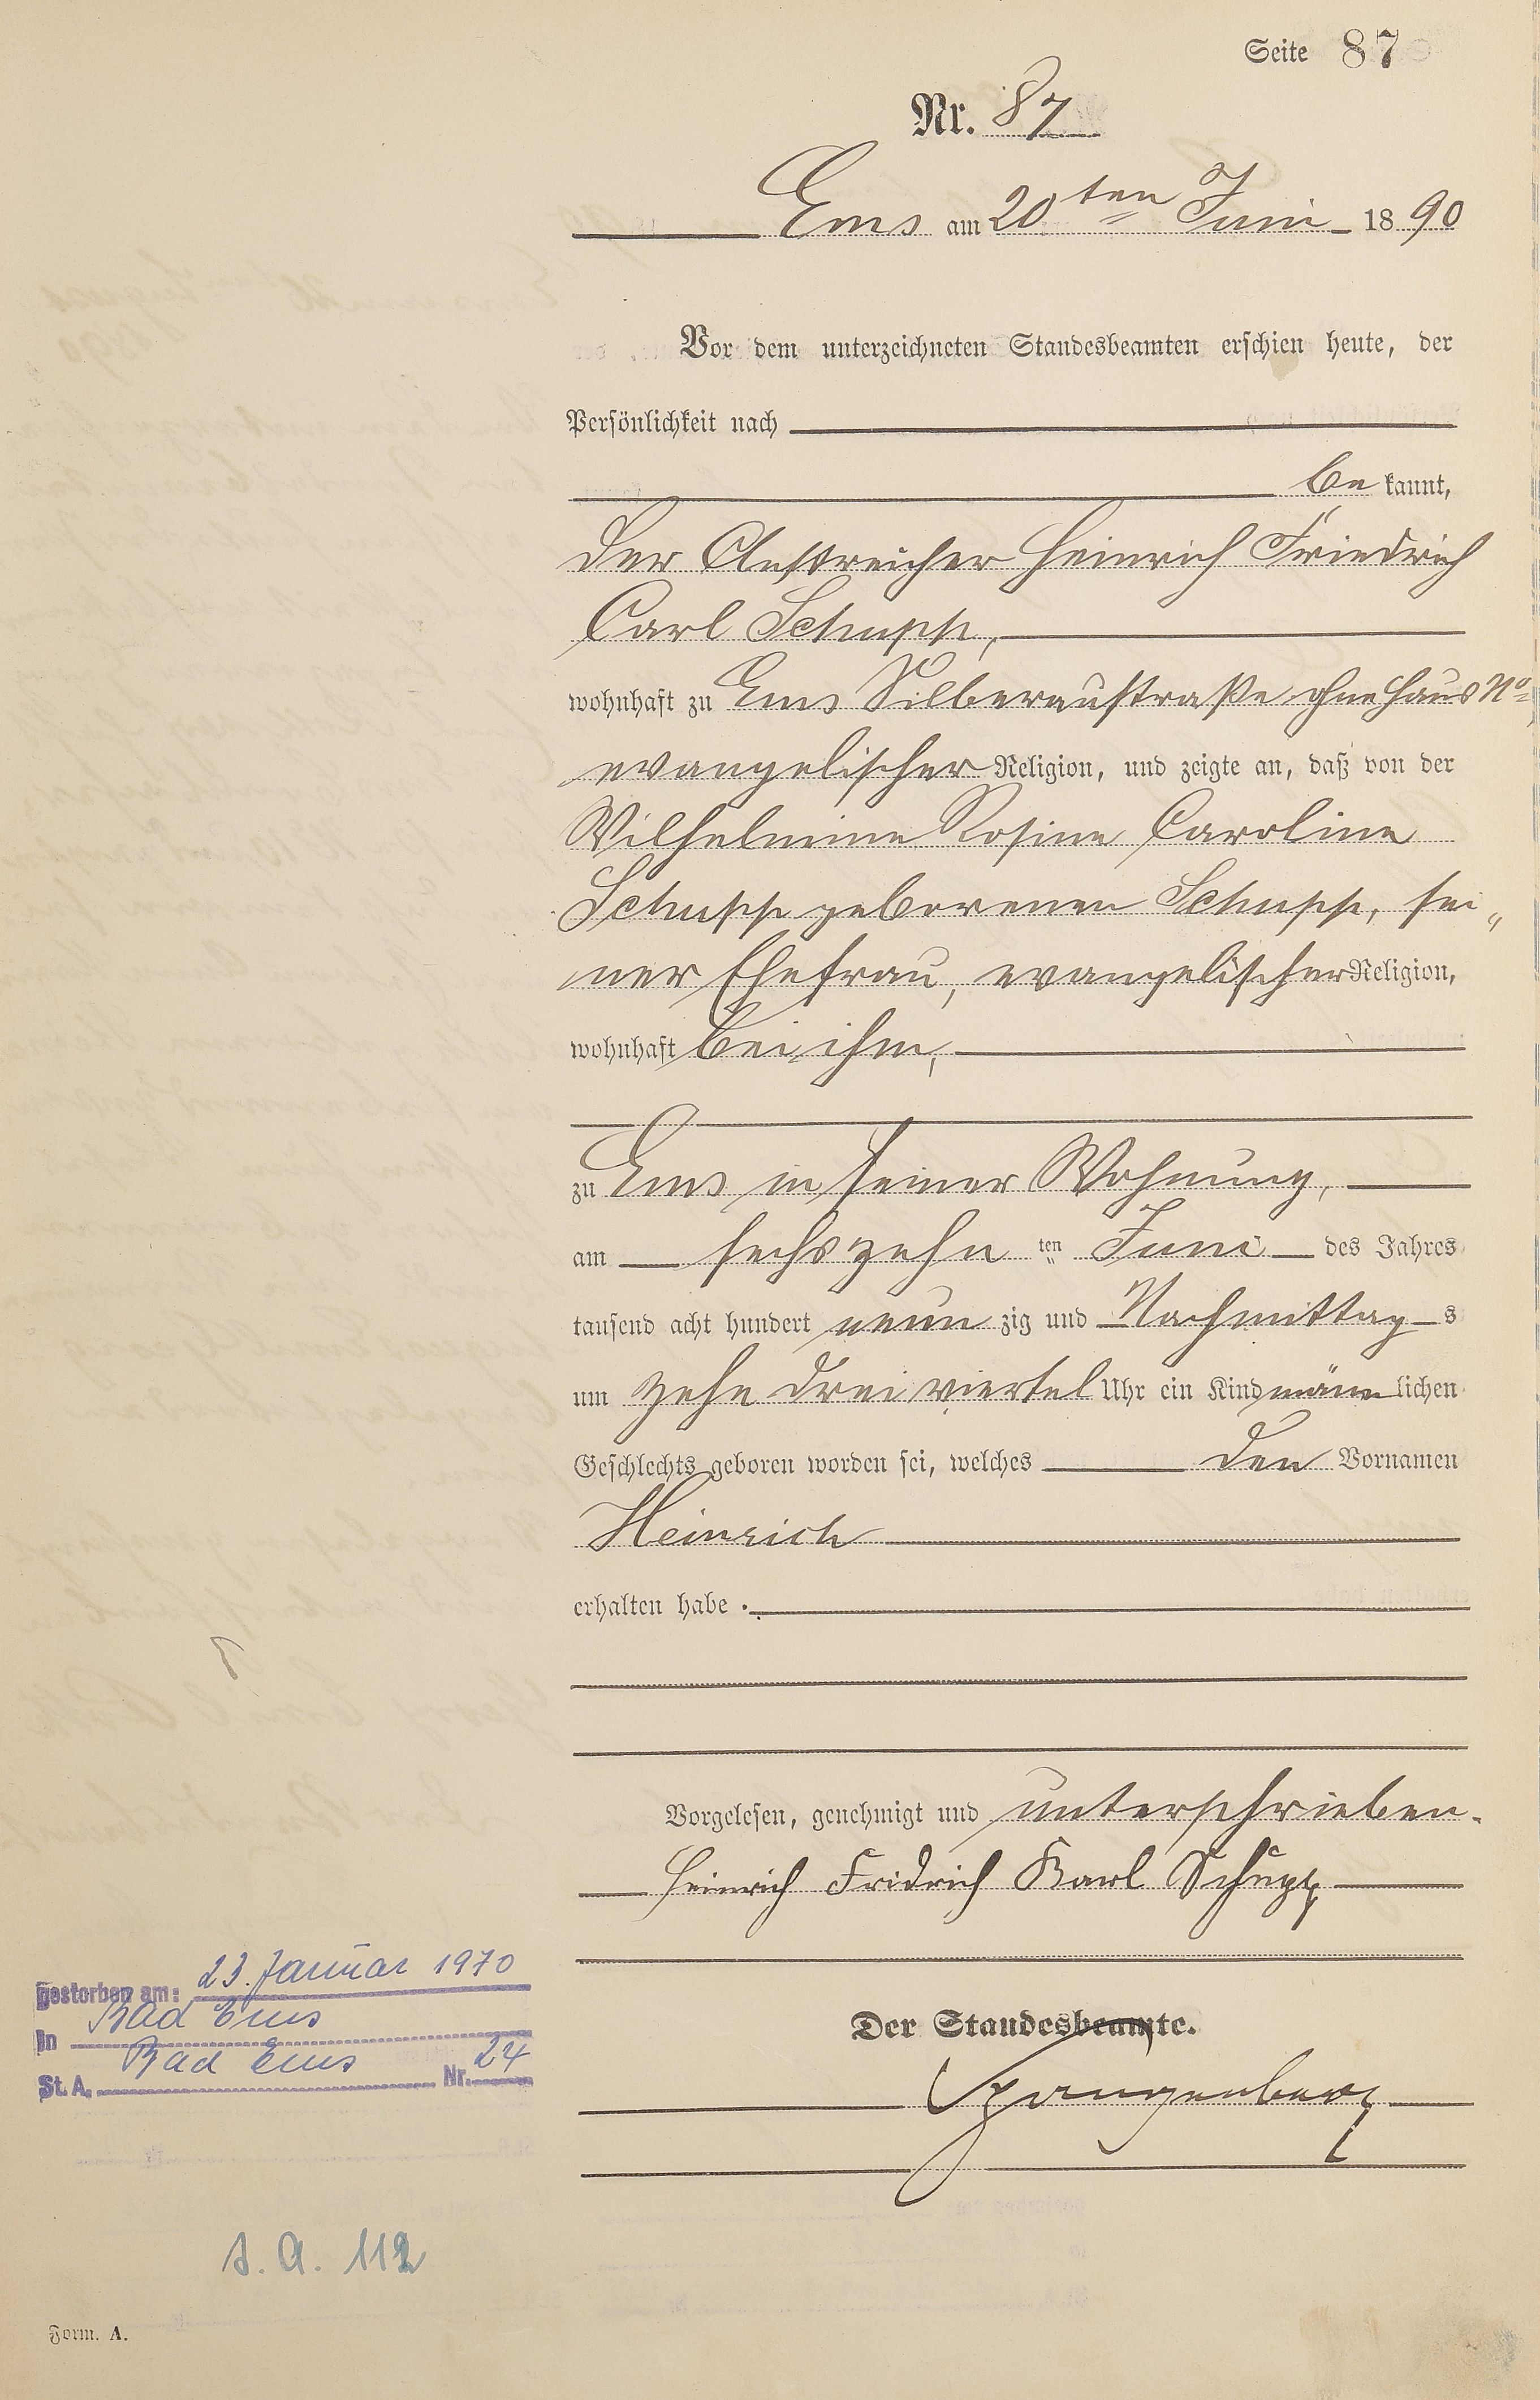 Seite 87
Nr. 87
Ems am 20ten Juni 1890
Vor dem unterzeichneten Standesbeamten erschien heute, der
Persönlichkeit nach
be kannt,
der Anstreicher Heinrich Friedrich
Carl Schupp,
wohnhaft zu Ems Silberaustraße ohne Haus No
evangelischer Religion, und zeigte an, daß von der
Wilhelmine Rosine Caroline
Schupp geborenen Schupp, sei„
ner Ehefrau, evangelischer Religion,
wohnhaft bei ihm,
zu Ems in seiner Wohnung,
am sechszehn ten Juni des Jahres
tausend acht hundert neun zig und Nachmittag s
um zehn drei viertel Uhr ein Kind männ lichen
Geschlechts geboren worden sei, welches den Vornamen
Heinrich
erhalten habe.
Vorgelesen, genehmigt und unterschrieben.
Heinrich Fridrich Karl Schupp
Der Standesbeamte.
Spangenberg
gestorben am: 23. Januar 1970
in Bad Ems
St. A. Bad Ems Nr. 24
s. a. 112
Form. A.